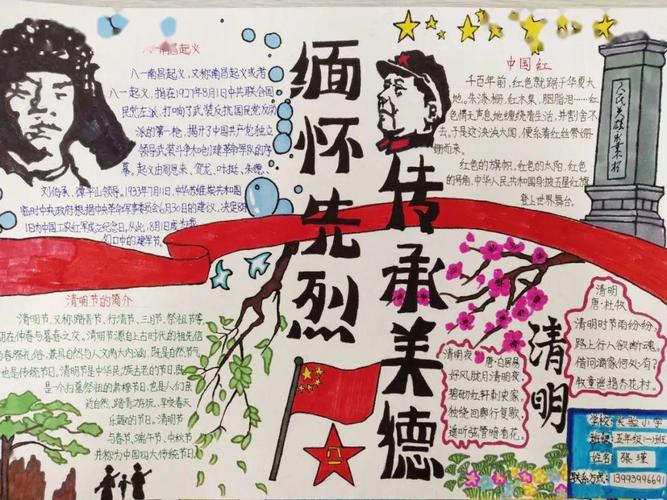 南昌起义
八一南昌起义,又称南昌起义或者
八一起义,指在1927年8月1日中共联合国
民党左派,打响了武装反抗国民党反动
派的第一枪,揭开了中国共产党独立
领导武装斗争和创建革命军队的序
幕。起义由周恩来、贺龙、叶挺、朱德、
刘伯承、谭平山领导。1933年7月11日,中华苏维埃共和国
临时中央政府根据中央革命军事委员会6月30日的建议,决定8月
1日为中国工农红军成立纪念日。从此,8月1日成为
们口中的建军节。
缅怀先烈
传承美德
中国红
千百年前,红色就踞于华夏大
地。朱漆栅,红木集,胭脂泪……红
色悄无声息地缠绕着生活,并割舍不
去。于是这泱泱大国,便系着红丝带姗
姗而来。
红色的旗帜,红色的太阳,红色
的号角,中华人民共和国身披五星红旗
登上世界舞台。
人民英雄永垂不朽
清明节的简介
清明节,又称踏青节、行清节、三月节、祭祖节等,
在仲春与暮春之交。清明节源自上古时代的祖先信
与春祭礼俗,兼具自然与人文两大内涵,既是自然节气
也是传统节日。清明节是中华民族古老的节日,既
是一个扫墓祭祖的肃穆节日,也是人们亲
近自然、踏青游玩、享受春天
乐趣的节日。清明节
与春节、端午节、中秋节
并称为中国四大传统节日
八一
清明夜
唐·白居易
好风胧月清明夜,
碧砌红轩刺史家。
独绕回廊行复歇,
遥听弦管暗看花。
清明
清明
唐·杜牧
清明时节雨纷纷,
路上行人欲断魂。
借问酒家何处有?
牧童遥指杏花村。
学校:实验小学
班级:五年级(一)班
姓名:张瑾
联系方式:13993994661